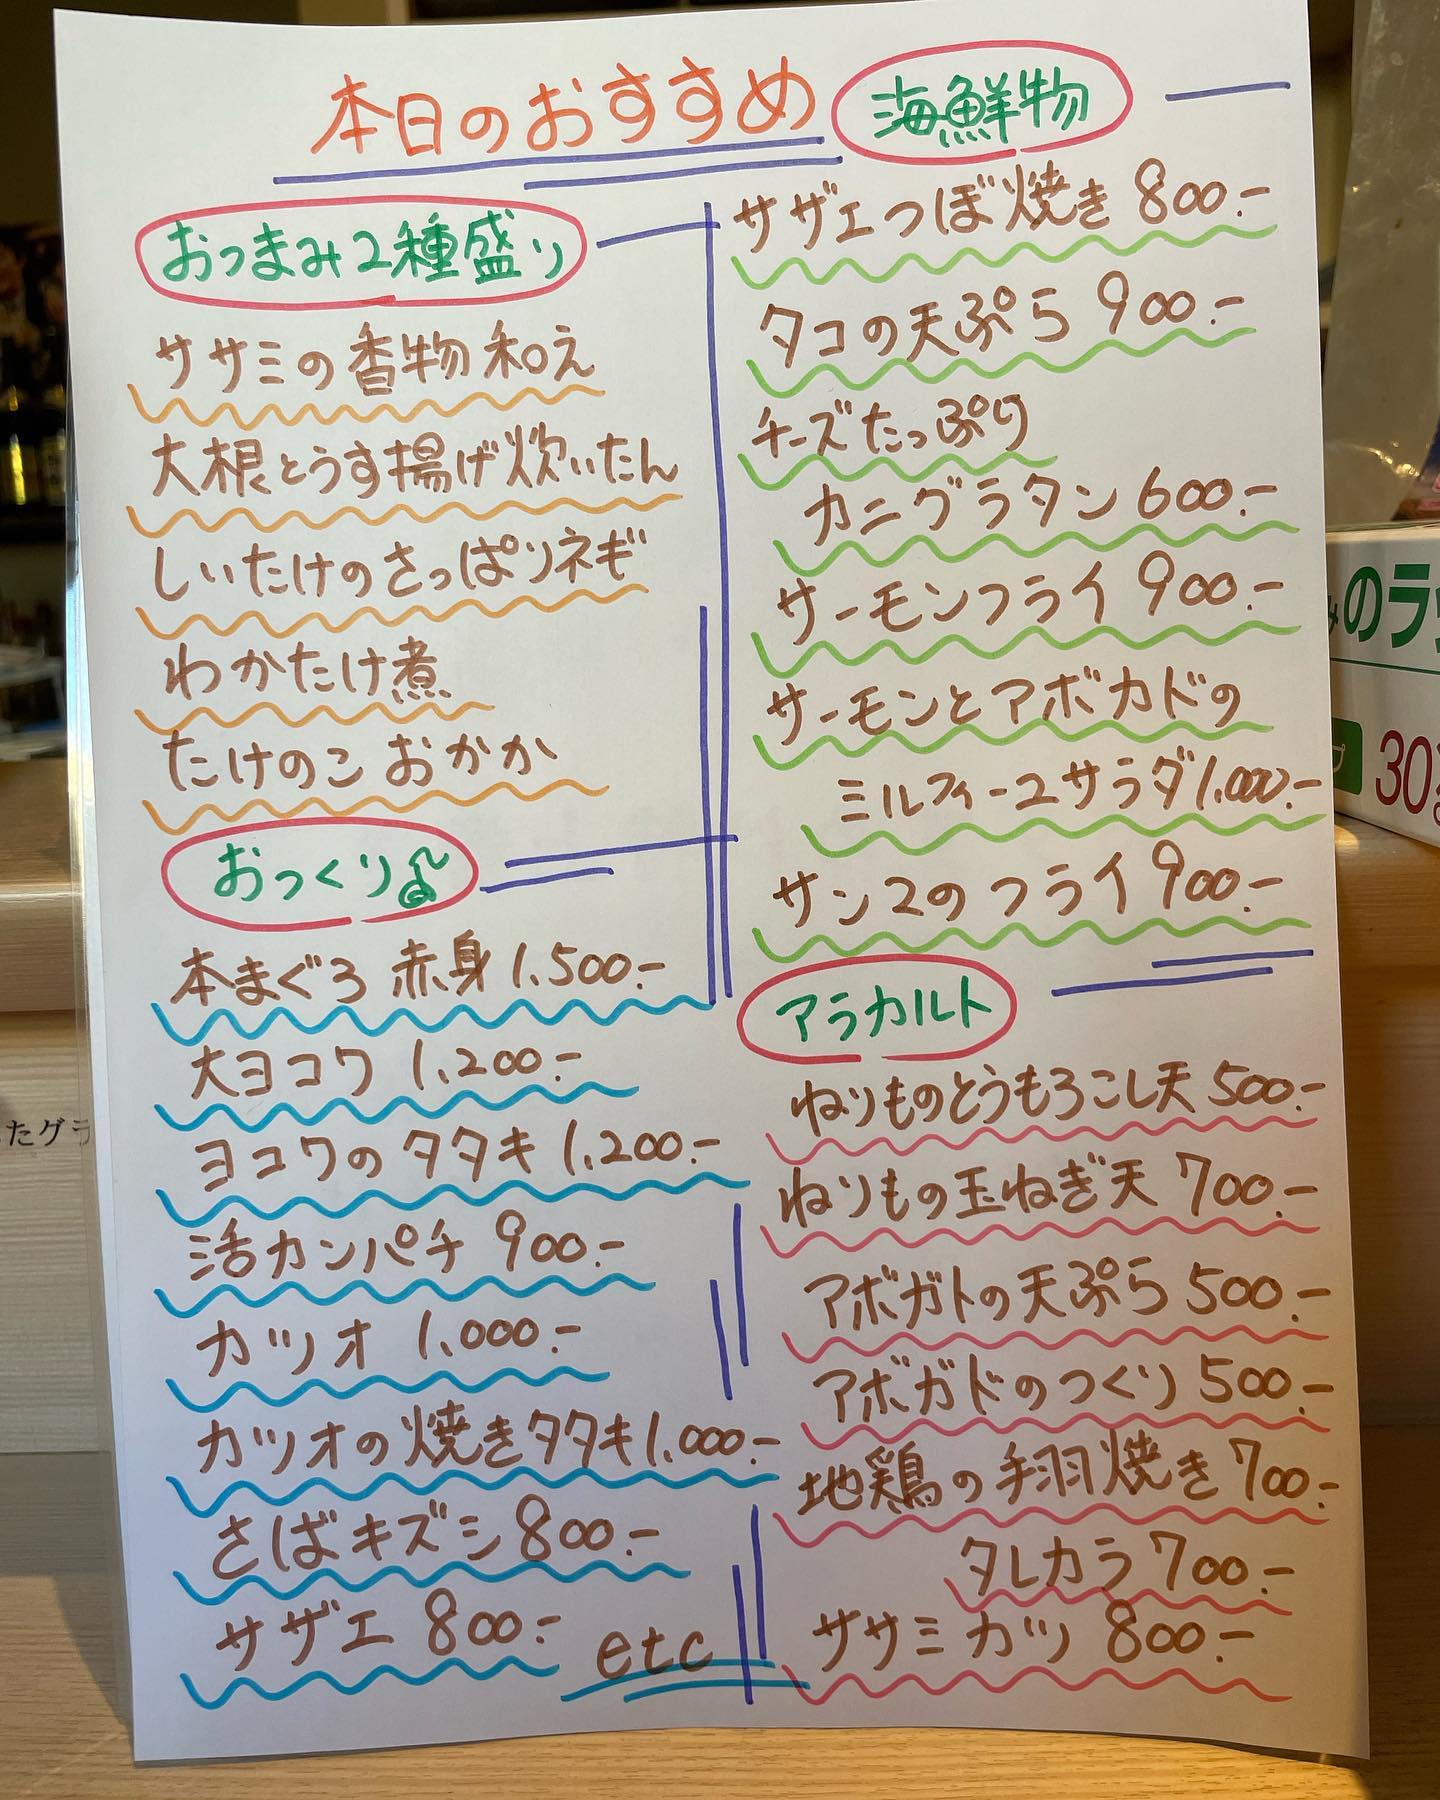 本日のおすすめ
おつまみ2種盛り
ササミの香物和え
大根とうす揚げ炊いたん
しいたけのさっぱりネギ
わかたけ煮
たけのこおかか
おつくり
本まぐろ 赤身 1,500.-
大ヨコワ 1,200.-
ヨコワのタタキ 1,200.-
活カンパチ 900.-
カツオ 1,000.-
カツオの焼きタタキ 1,000.-
さばキズシ 800.-
サザエ 800.-
etc
海鮮物
サザエつぼ焼き 800.-
タコの天ぷら 900.-
チーズたっぷり
カニグラタン 600.-
サーモンフライ 900.-
サーモンとアボカドの
ミルフィーユサラダ 1,000.-
サンマのフライ 900.-
アラカルト
ねりものとうもろこし天 500.-
ねりもの玉ねぎ天 700.-
アボガトの天ぷら 500.-
アボガドのつくり 500.-
地鶏の手羽焼き 700.-
タレカラ 700.-
ササミカツ 800.-
のラッ
30
たグラ